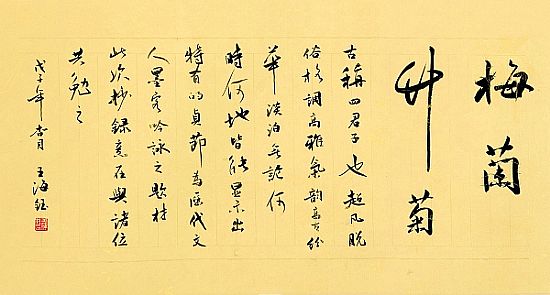 梅蘭
竹菊
古稱四君子也超凡脫
俗格調高雅氣韻高古紛
華淡泊無論何
時何地皆能显示出
特有的貞節為歷代文
人墨客吟詠之題材
此次抄錄意在與諸位
共勉之
戊子年杏月 王海鈺